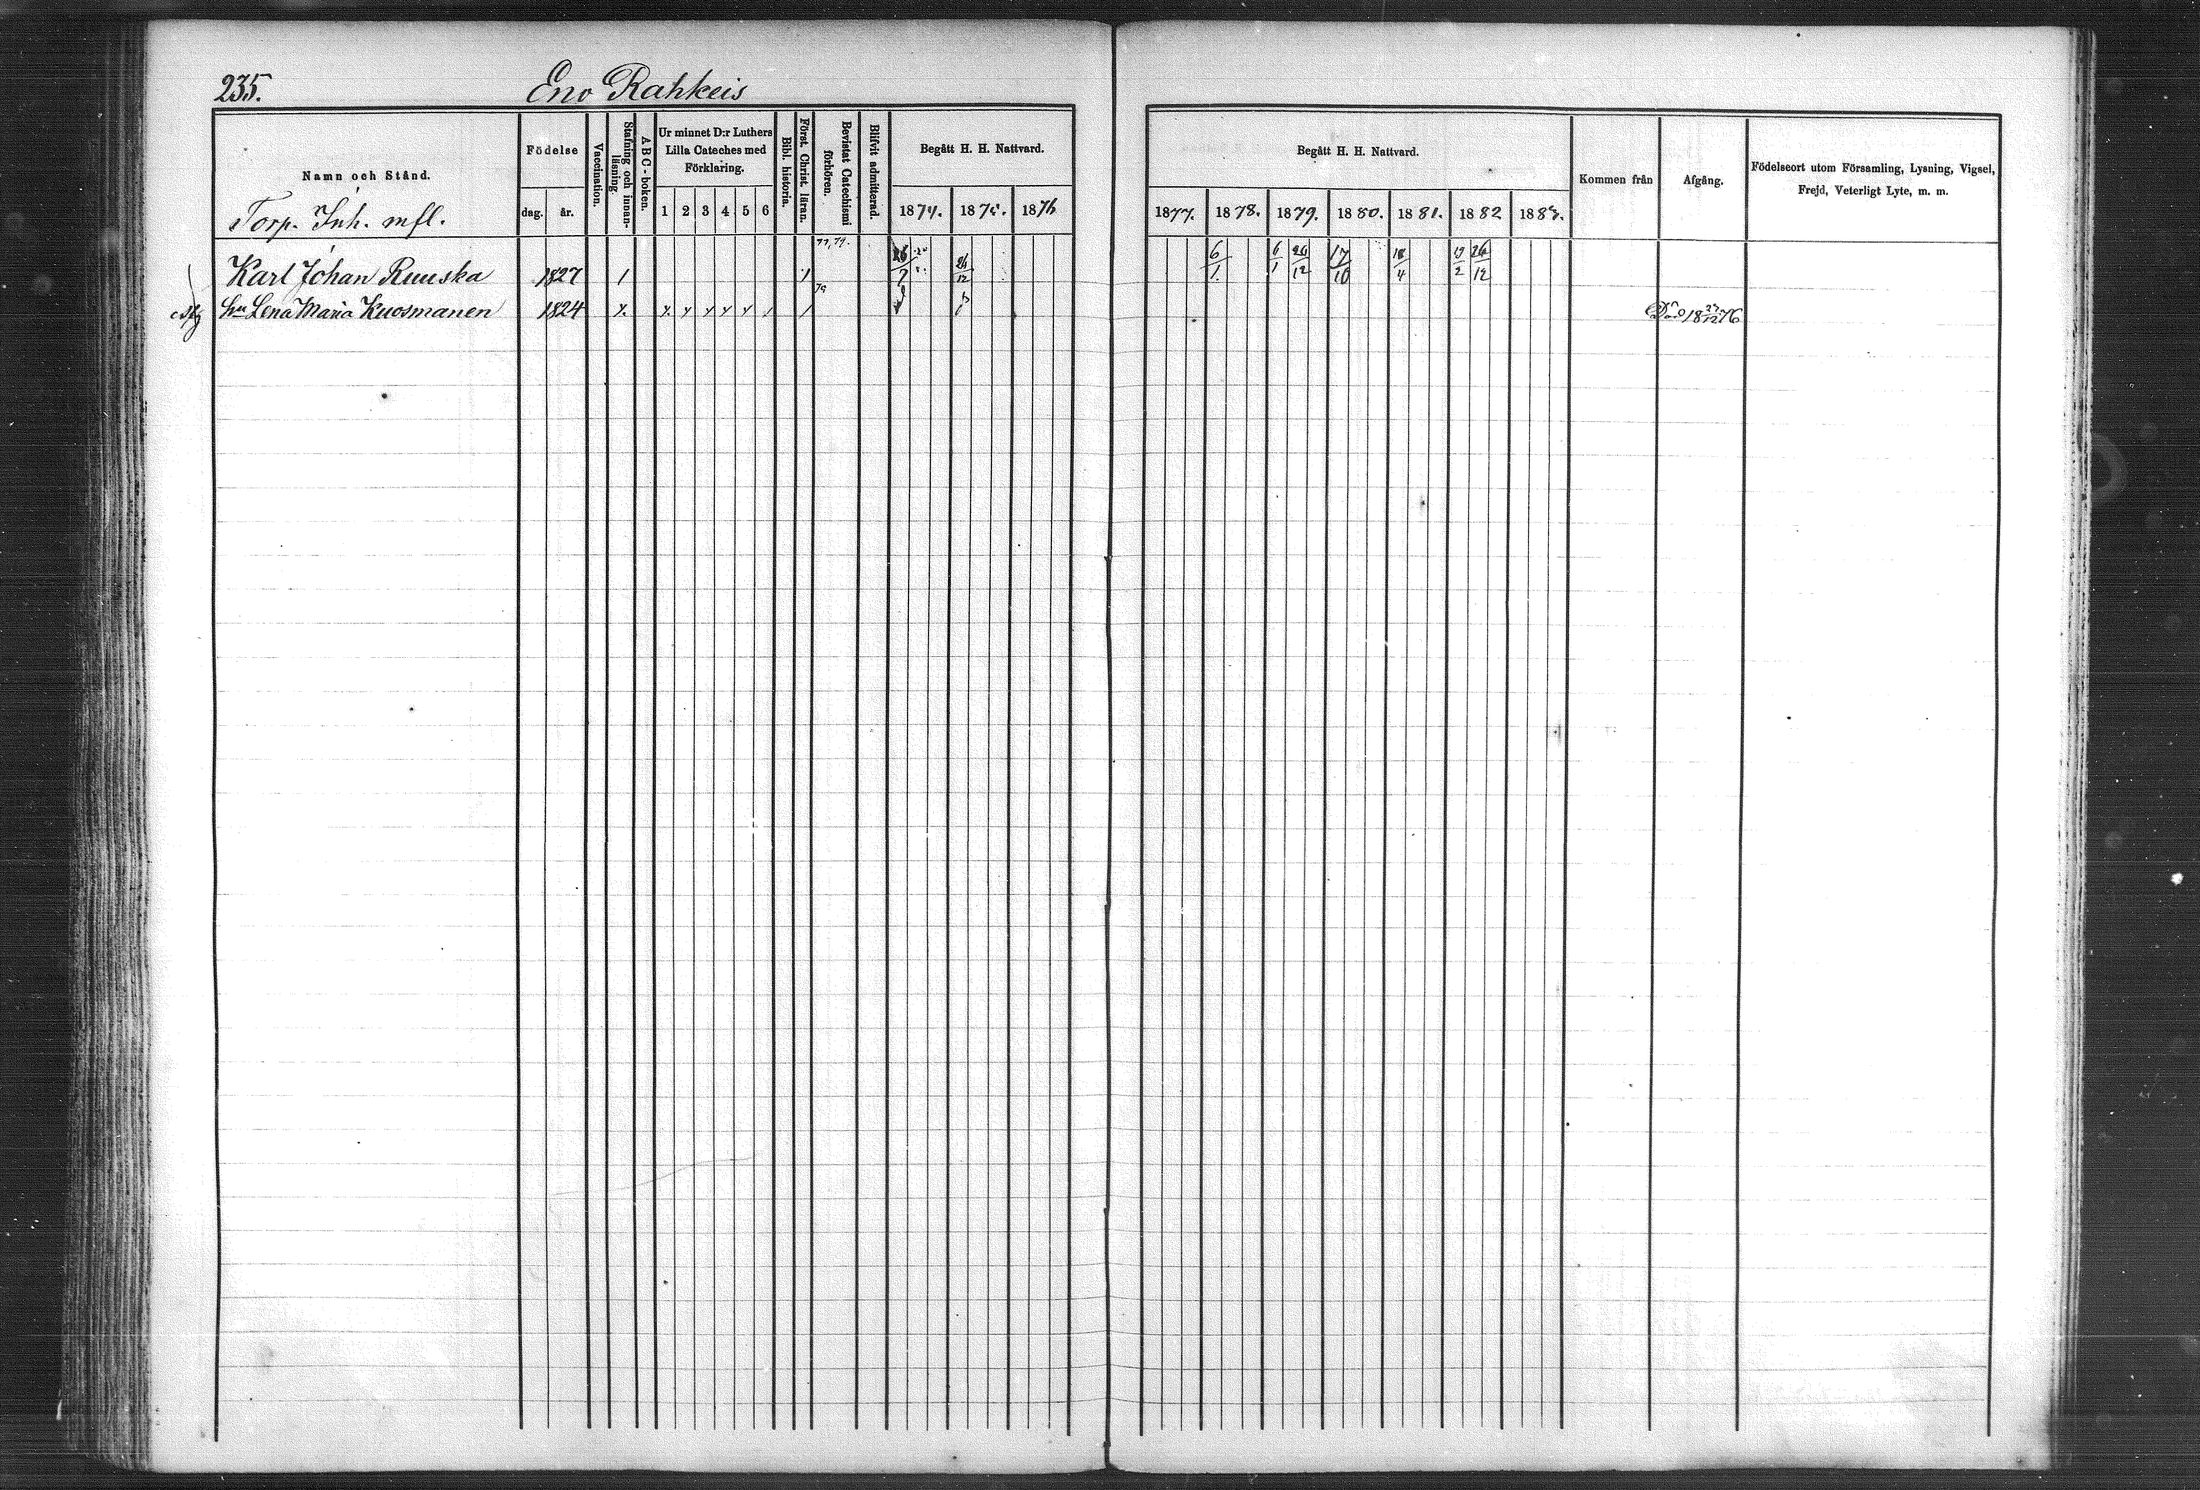 235. Eno Rahkeis
Namn och Stånd.
Födelse
dag. år.
Vaccination.
Stafning och innan-
läsning.
A B C - boken.
Ur minnet D:r Luthers
Lilla Cateches med
Förklaring.
1 2 3 4 5 6
Bibl. historia.
Först. Christ. läran.
Bevistat Catechismi
förhören.
Blifvit admitterad.
Begått H. H. Nattvard.
1874. 1875. 1876
Begått H. H. Nattvard.
1877. 1878. 1879. 1880. 1881. 1882 1883.
Kommen från
Afgång.
Födelseort utom Församling, Lysning, Vigsel,
Frejd, Veterligt Lyte, m. m.
Torp. Inh. mfl.
Karl Johan Ruuska 1827 26/12 6/1 6/1 26/12 17/10 18/4 19/2 26/12
hu Lena Maria Kuosmanen 1824 Död 18 23/12 76